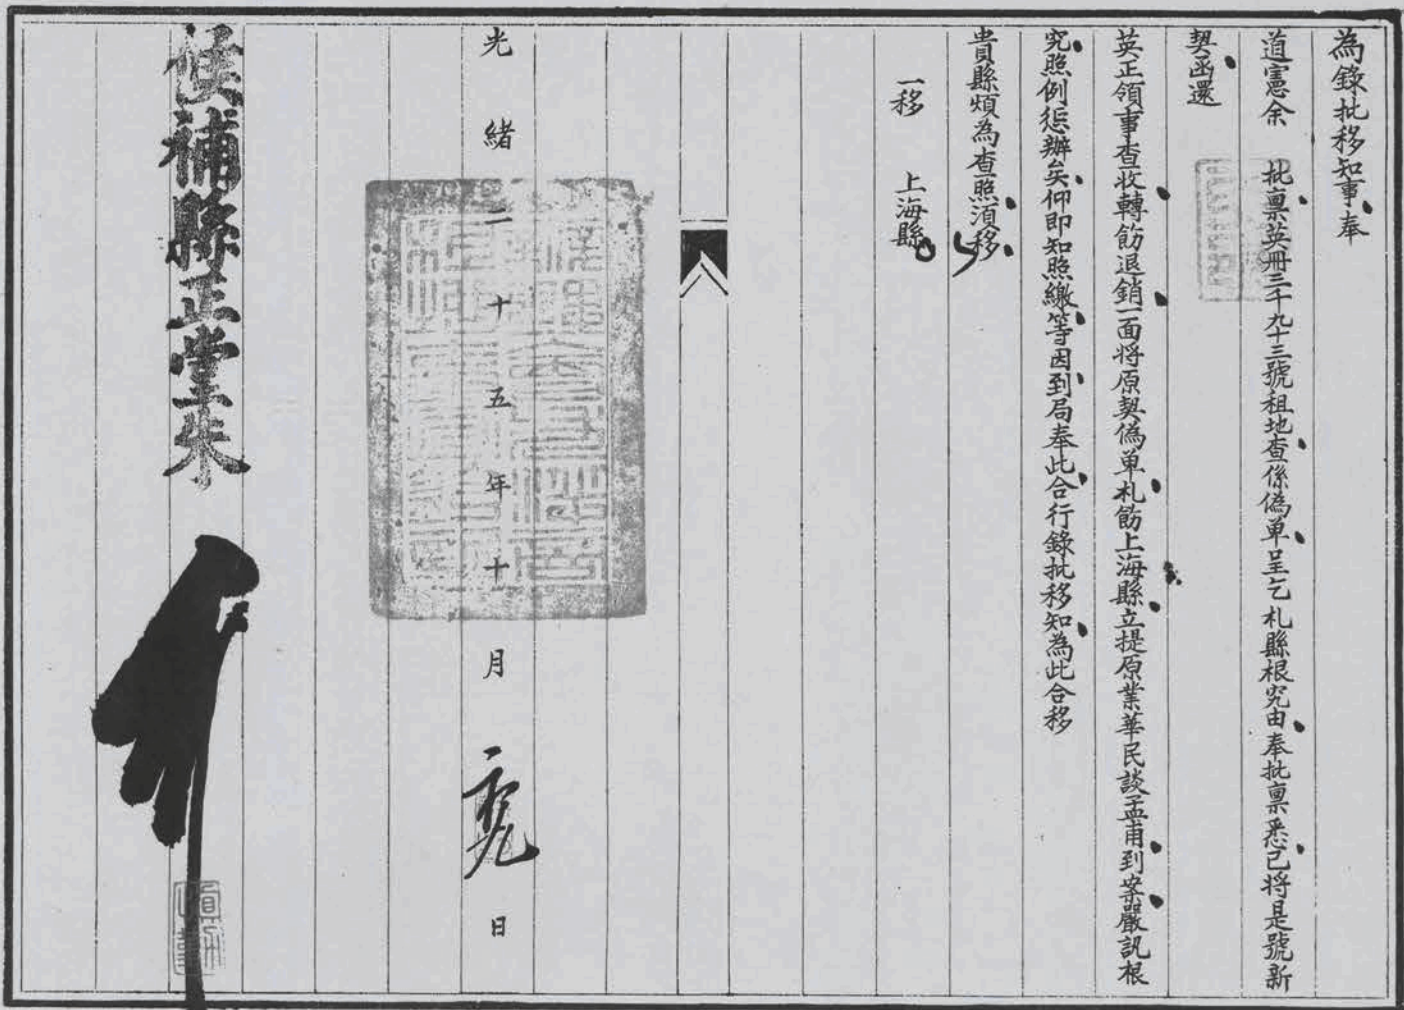 為錄批移知事奉
道憲余　批禀英冊三千九十三號租地查係偽單呈乞札縣根究由奉批禀悉已將是號新
契函還
英正領事查收轉飭退銷一面将原契偽单札飭上海縣立提原業華民談孟甫到案嚴訊根
究照例懲辦矣仰即知照繳等因到局奉此合行錄批移知為此合移
貴縣煩為查照湏移
一移　上海縣
光緒二十五年十月　日
候補縣正堂朱